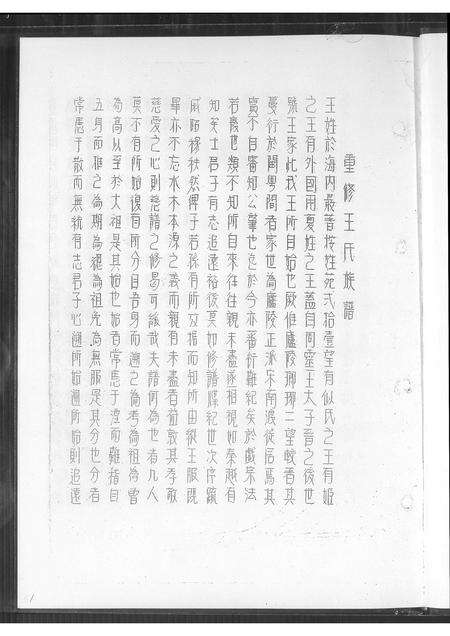 重修王氏族譜
王姓於海內最著按姓苑弍拾壹望有似氏之王有姬
之王有外國用夏姓之王蓋自周靈王太子晉之後世
號王家此我王所自始也厥惟廬陵瑯琊二望較著其
蔓行於閩粵間者家世為廬陵正派宋南渡從居焉其
實不自審知公肇也迄於今亦蕃衍難紀矣於戲宗法
若廢也類不知所自來往往親未盡遂相視如秦越有
知矣士君子有志追遠裕後莫如修譜條紀世次序
昭穆秩然俾子若孫有所攷指而知所由縱王服既
畢亦不忘水木本源之義而親有未盡者葡敦其孝敬
慈愛之心則急譜之修曷可緩哉夫譜何為也者凡人
莫不有所始復有所分自吾身而遡之為考為祖為曾
為高以至於太祖是其始也始者常患于湮而難指自
五身而推之為期為緦為祖免為無服是其分也分者
常患于散而無統有志君子心遡所始遍所始則追遠